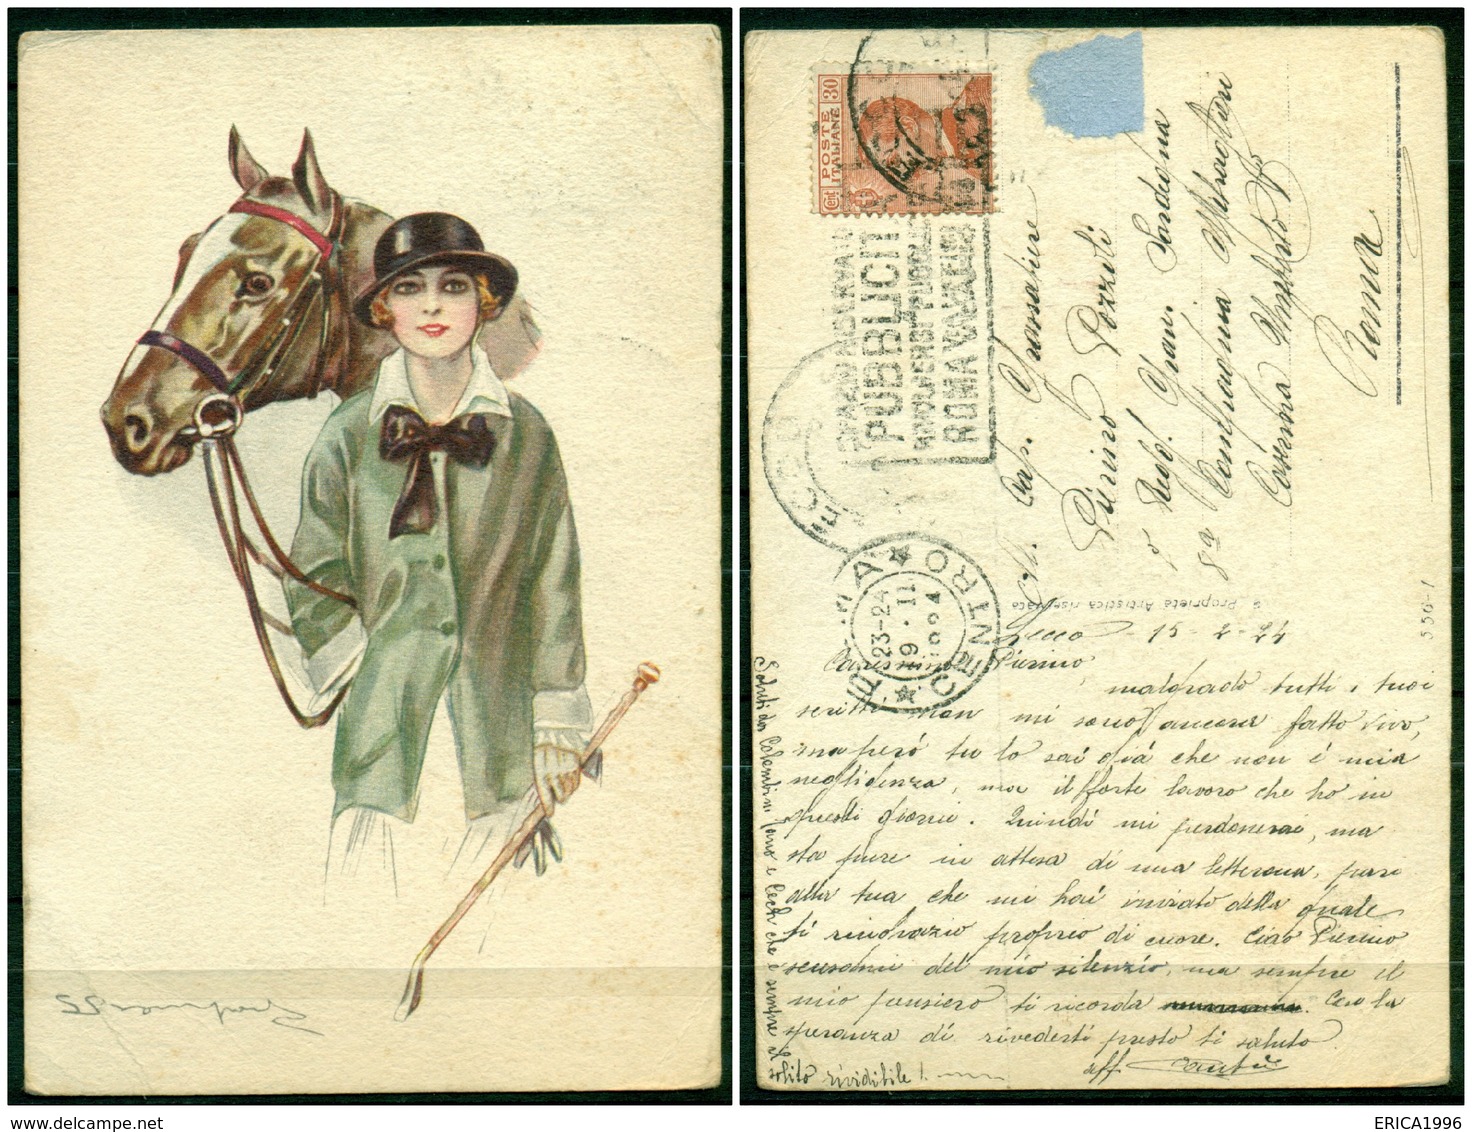 Cent 30
POSTE
ITALIANE
PUBBLICIT
RIVOLGERSI
ROMA
LECCO
CENTRO
23-24
9 · II
1924
All. Cap. Granatiere
Pierino Pozzoli
1° Regg. Gran. Sardegna
8a Compagnia Mitraglieri
Caserma Umberto I°
Roma
Proprietà Artistica riservata
556-1
Lecco - 15-2-24
Carissimo Pierino,
malgrado tutti i tuoi
scritti, non mi sono ancora fatto vivo,
ma però tu lo sai già che non é mia
negligenza, ma il forte lavoro che ho in
questi giorni. Quindi mi perdonerai, ma
sta pure in attesa di una letterona, pari
alla tua che mi hai inviato della quale
ti ringrazio proprio di cuore. Ciao Pierino
scusami del mio silenzio, ma sempre il
mio pensiero ti ricorda. Con la
speranza di rivederti presto ti saluto
aff.
Saluti da Colombin e Cech che é sempre il
solito rividibile!
ERICA1996